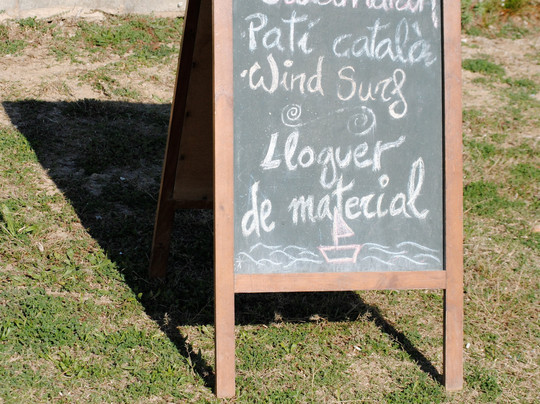 Patí català
Wind Surf
Lloguer
de material